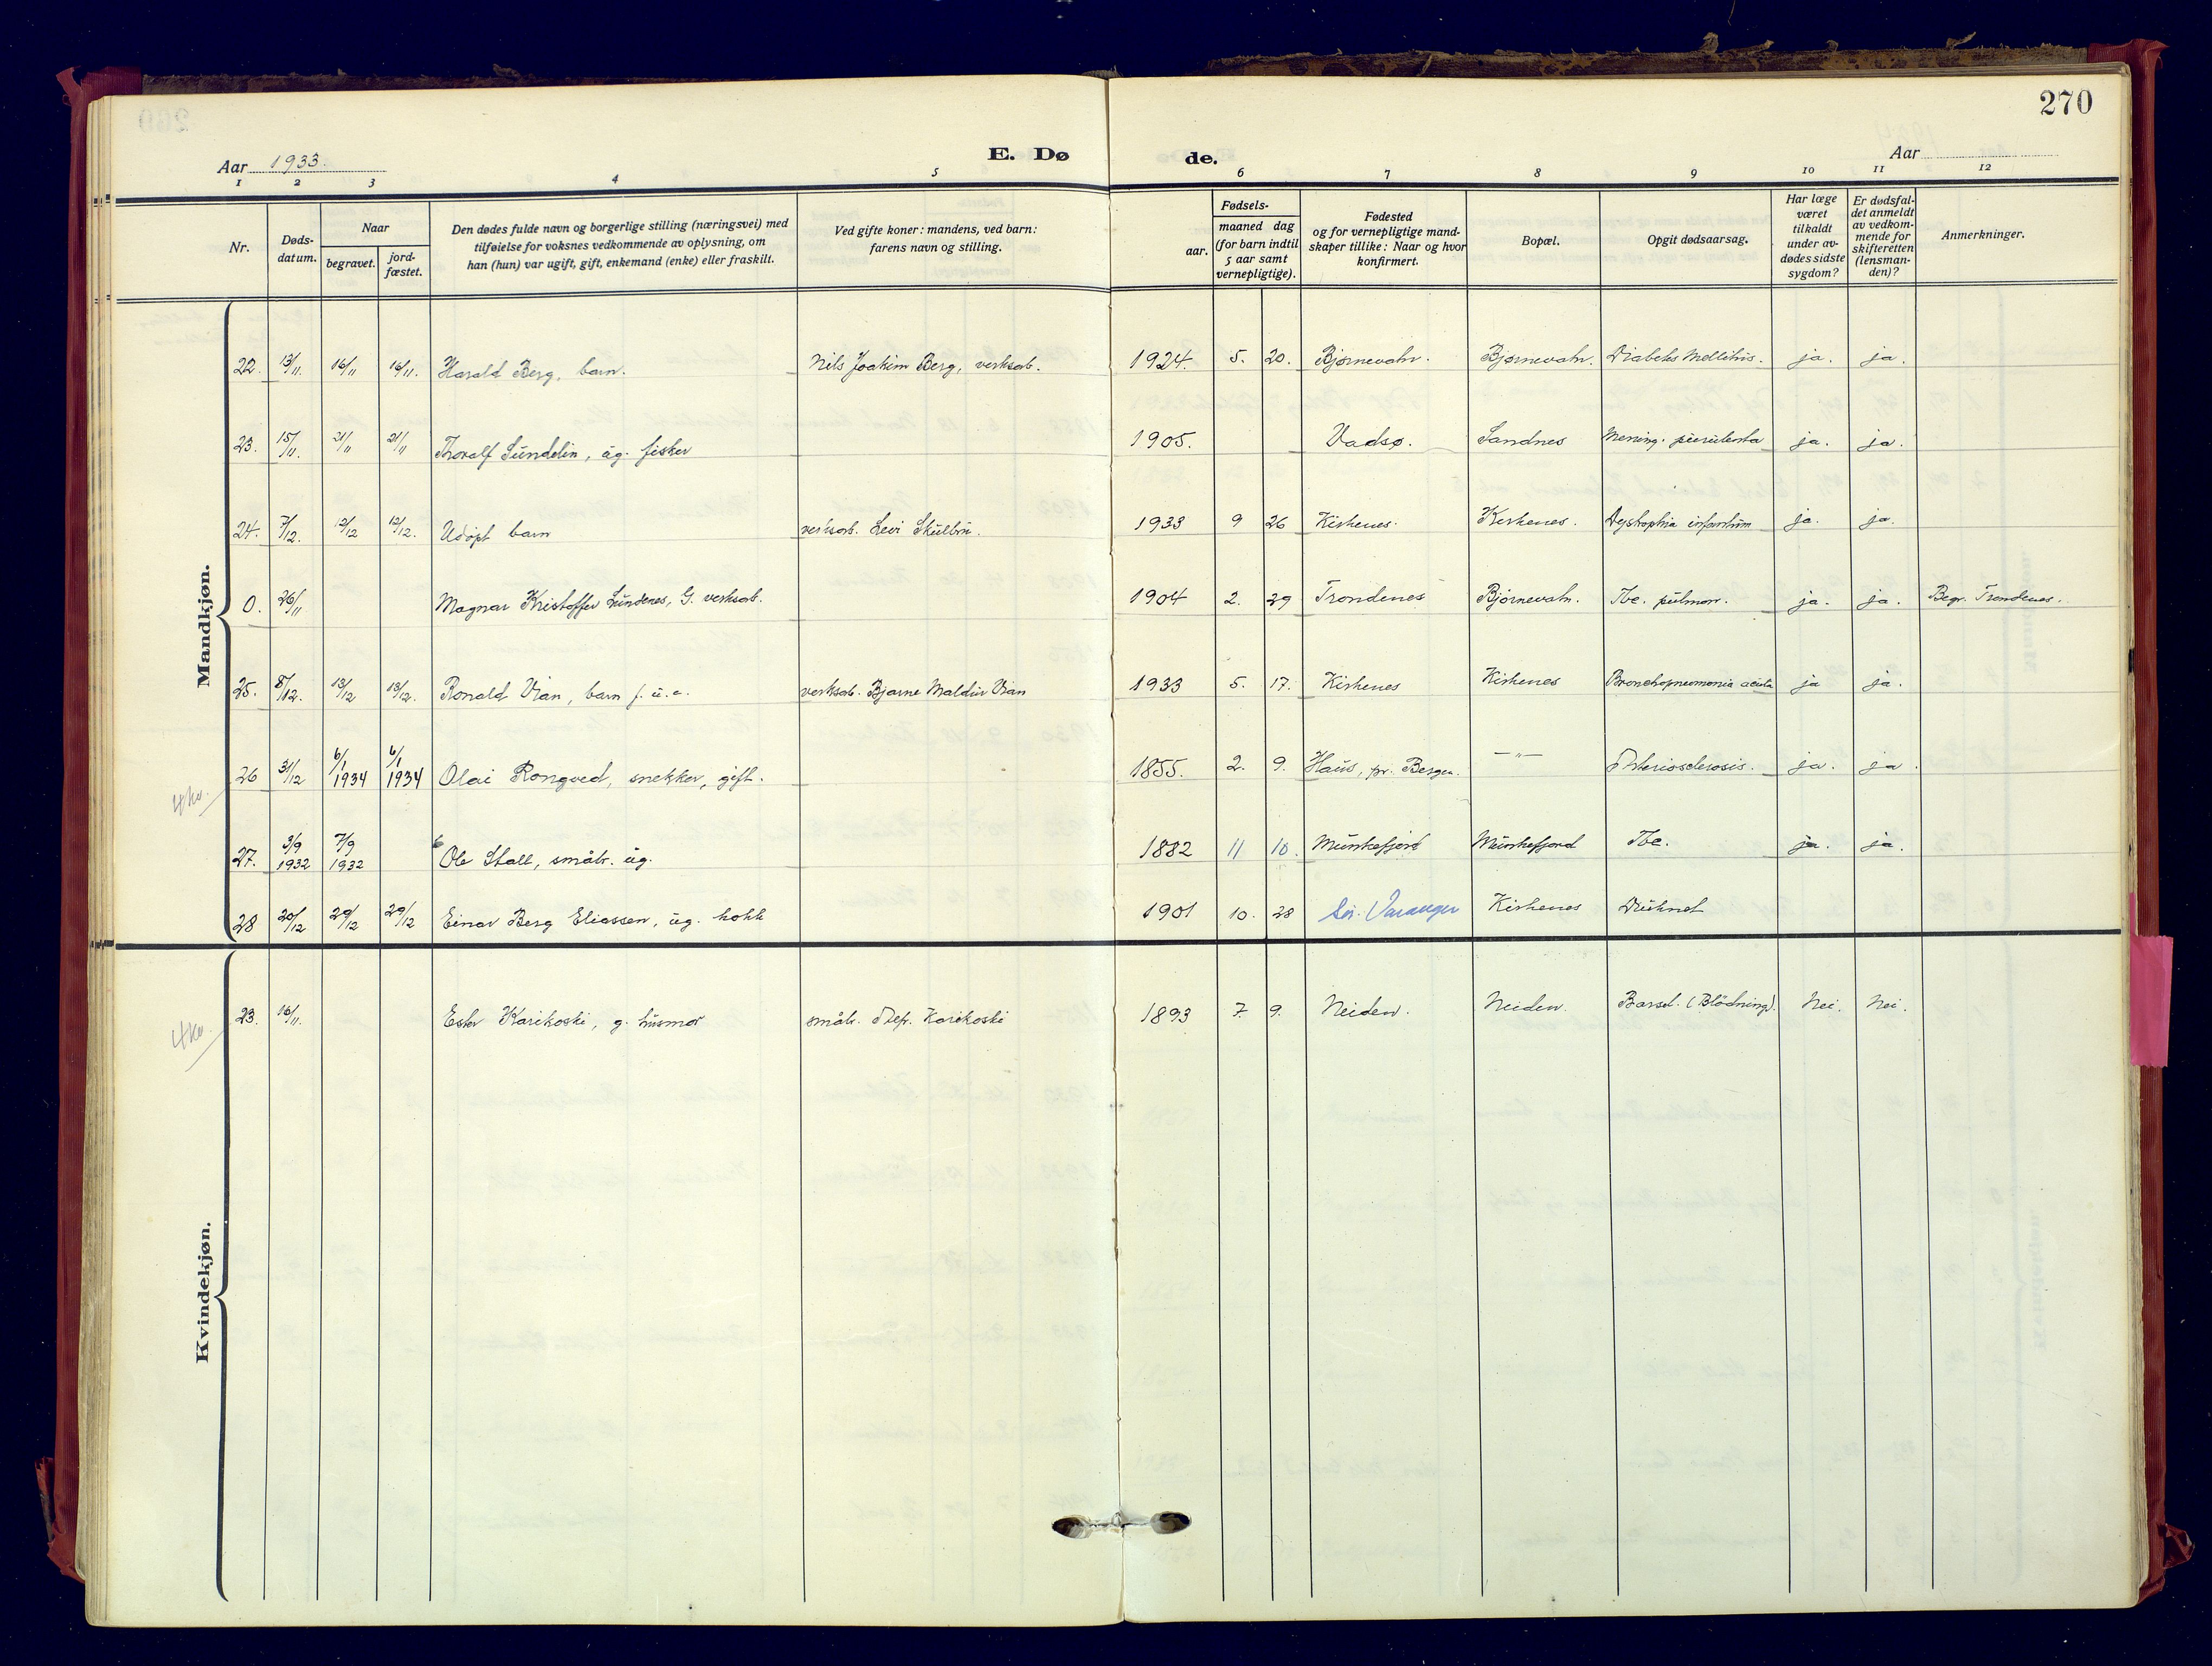 270
Aar 1933.
E. Dø
de.
Aar
1 2 3 4 5 6 7 8 9 10 11 12
Nr.
Døds-
datum.
Naar
begravet.
jord-
fæstet.
Den dødes fulde navn og borgerlige stilling (næringsvei) med
tilføielse for voksnes vedkommende av oplysning, om
han (hun) var ugift, gift, enkemand (enke) eller fraskilt.
Ved gifte koner: mandens, ved barn:
farens navn og stilling.
Fødsels-
aar.
maaned dag
(for barn indtil
5 aar samt
vernepligtige).
Fødested
og for vernepligtige mand-
skaper tillike: Naar og hvor
konfirmert.
Bopæl.
Opgit dødsaarsag.
Har læge
været
tilkaldt
under av-
dødes sidste
sygdom?
Er dødsfal-
det anmeldt
av vedkom-
mende for
skifteretten
(lensman-
den)?
Anmerkninger.
Mandkjøn.
22. 13/11. 16/11 16/11. Harald Berg, barn. Nils Joakim Berg, verksarb. 1924. 5. 20. Bjørnevatn. Bjørnevatn. Diabetes Mellitus. ja. ja.
23. 15/11. 21/11 21/11 Thoralf Sundelin, ug. fisker 1905. Vadsø. Sandnes Mening. purulenta ja. ja.
24. 7/12. 12/12 12/12. Udøpt barn verksarb. Levi Skulbru. 1933 9 26 Kirkenes. Kirkenes. Dystrophia infantum ja. ja.
0. 26/11 Magnar Kristoffer Lundenes, G. verksarb. 1904 2. 29 Trondenes Bjørnevatn. Tbc. pulmon. ja. ja. Begr. Trondenes.
25. 8/12. 13/12 13/12. Ronald Vian, barn f. u. e. verksarb. Bjarne Maldin Vian 1933 5. 17. Kirkenes Kirkenes Bronchopneumonia acuta ja ja.
26 31/12 6/1 1934 6/1 1934 Olai Rongved, snekker, gift. 1855. 2. 9. Haus, pr. Bergen. —"— Arteriosclerosis. ja. ja.
27. 3/9 1932 7/9 1932 Ole Stall, småbr. ug. 1882 11 10. Munkefjord Munkefjord Tbc. ja. ja.
28 20/12 29/12 29/12 Einar Berg Eliassen, ug. kokk 1901 10. 28 Sør-Varanger Kirkenes Druknet
Kvindekjøn.
23. 16/11. Ester Karikoski, g. husmor småbr. Karikoski 1893 7. 9. Neiden. Neiden. Barsel. (Blødning). Nei. Nei.